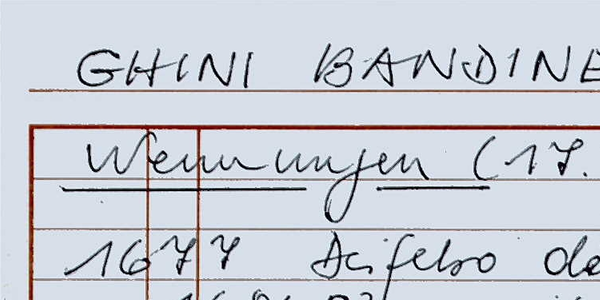 GHINI BANDINE
Nennungen (17.
1677 Deifebo de